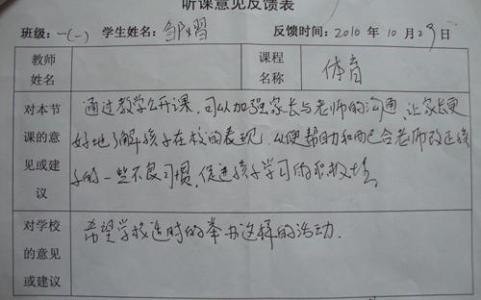 听课意见反馈表
班级：一(一) 学生姓名：邹 習 反馈时间：2010 年 10 月 29 日
教师姓名 课程名称 体育
对本节课的意见或建议
通过教学公开课，可以加强家长与老师的沟通，让家长更
好地了解孩子在校的表现，以便帮助和配合老师改正孩
子的一些不良习惯，促进孩子学习的积极性。
对学校的意见或建议
希望学校适时的举办这样的活动.